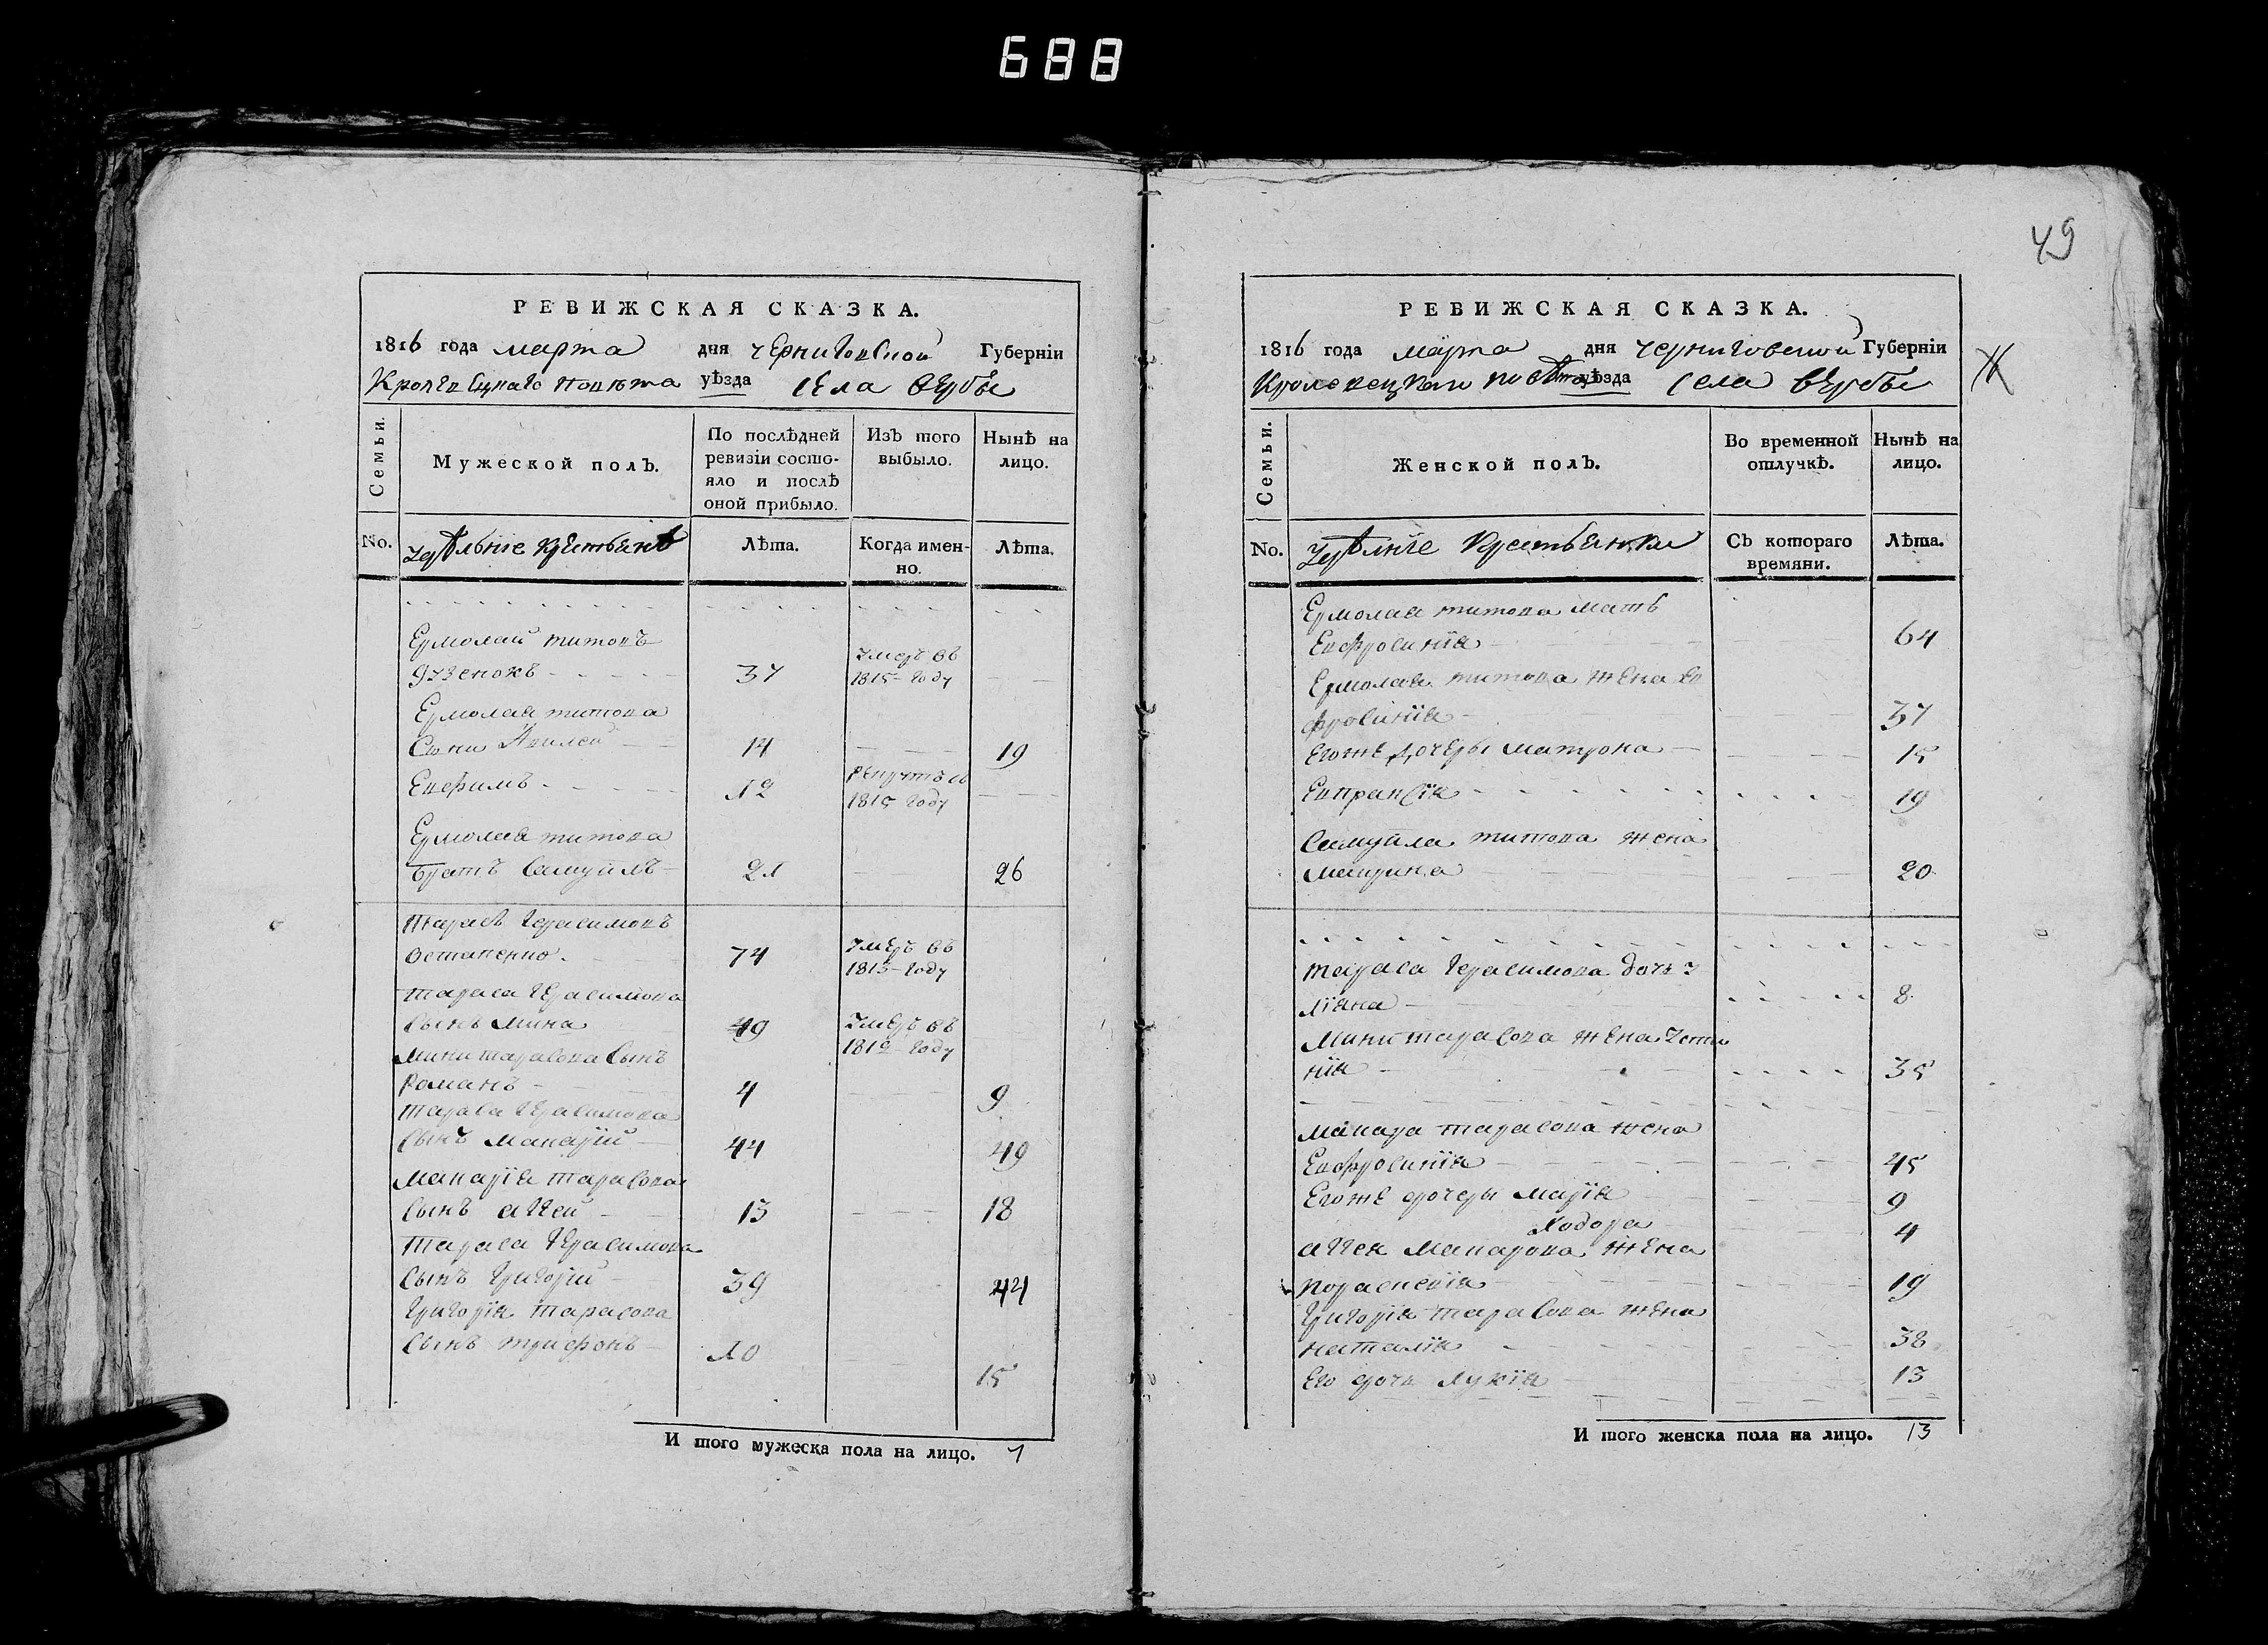 688
49
РЕВИЖСКАЯ СКАЗКА.
1816 года марта дня черниговской Губернїи
Кролевецкаго повѣта уѣзда села вербы
Семьи.
Мужеской полЪ.
По послѣдней ревизїи состояло и послѣ оной прибыло.
ИзЪ того выбыло.
НынѢ на лицо.
No.
удѣльніе крестьянѣ
ЛѢта.
Когда именно.
ЛѢта.
Ермолай титовъ
умеръ въ
37 1815 году
Ермолая титова
Сыни 14 19
Евфимъ рекрутъ въ
12 1815 году
Ермолая титова
братъ Самуйлъ 21 26
Тарасъ Герасимовъ
Остапенко 74 умеръ въ 1813 году
Тараса Герасимова
Сынъ Мина 49 умеръ въ 1812 году
Мини тарасова Сынъ
Романъ 4 9
Тараса Герасимова
Сынъ Макарїй 44 49
Макарїя тарасова
Сынъ аггей 13 18
Тараса Герасимова
Сынъ Григорїй 39 44
Григорїя тарасова
Сынъ трифонъ 10 15
И того мужеска пола на лицо. 7
РЕВИЖСКАЯ СКАЗКА.
1816 года марта дня черниговской Губернїи
Кролевецкаго повѣта уѣзда села вербы
Семьи.
Женской полЪ.
Во временной отлучкѢ.
НынѢ на лицо.
No.
удѣлніе крестьянки
СЪ котораго времяни.
ЛѢта.
Ермолая титова мать
Евфросинїя 64
Ермолая титова жена Ев
фросинїя 37
Егоже дочеры матрона 15
Евпраксїя 19
Самуйла титова жена
Марина 20
Тараса Герасимова дочь у
лїяна 8
Мини тарасова жена усти
нїя 35
Макара тарасова жена
Евфросинїя 45
Егоже дочеры Марїя 9
Ходора 4
аггея Макарова жена
Пораскевїя 19
Григорїя тарасова жена
наталїя 38
Его дочь Лукїя 13
И того женска пола на лицо. 13